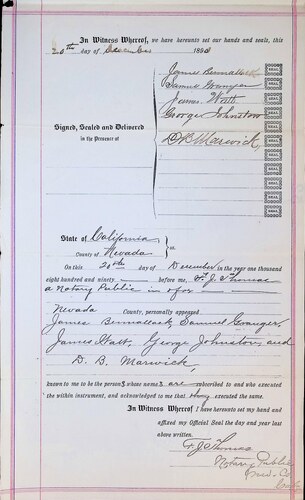 In Witness Whereof, we have hereunto set our hands and seals, this
20th day of December 1890
James Bennallack
Samuel Granger
James Watt
George Johnston
Signed, Sealed and Delivered
in the Presence of
D B Marwick
State of California
County of Nevada } ss
On this 20th day of December in the year one thousand
eight hundred and ninety before me, F. J. Thomas
a Notary Public in & for
Nevada County, personally appeared
James Bennallack, Samuel Granger,
James Watt, George Johnston, and
D. B. Marwick,
known to me to be the persons whose names are subscribed to and who executed
the within instrument, and acknowledged to me that they executed the same.
In Witness Whereof I have hereunto set my hand and
affixed my Official Seal the day and year last
above written.
F. J. Thomas
Notary Public